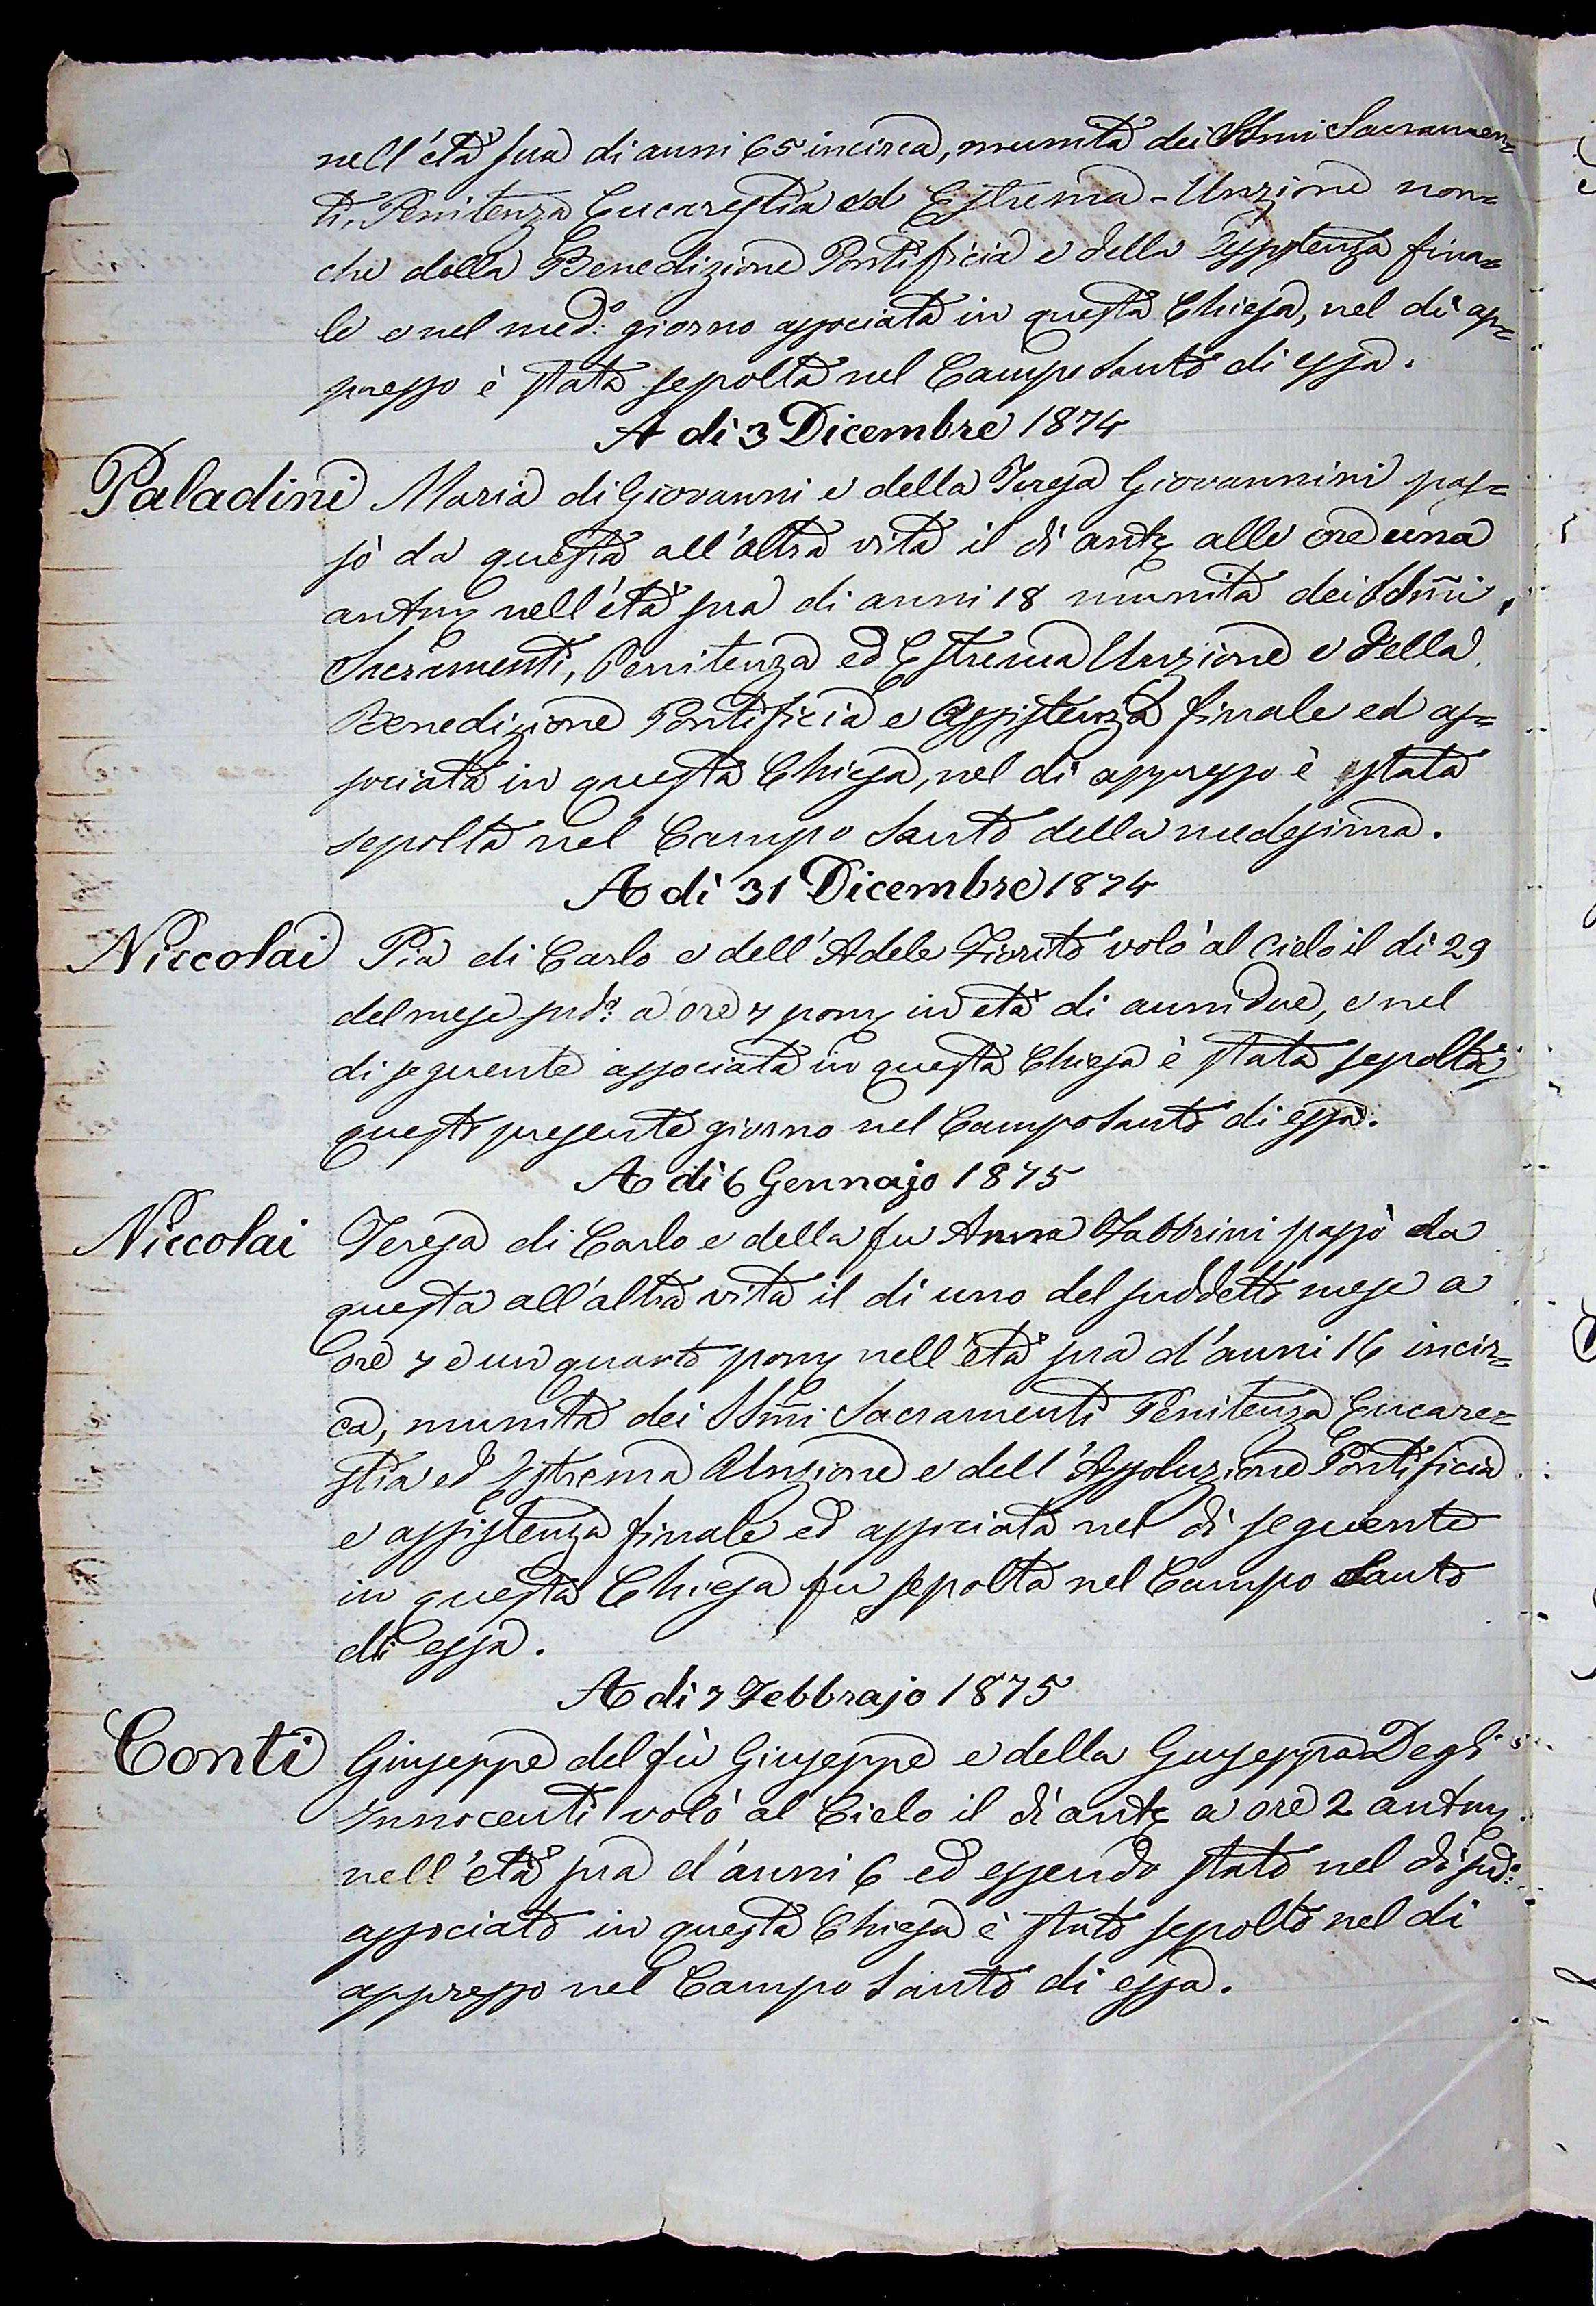 nell'età sua di anni 65 incirca, munita dei SSmi Sacramen=
ti, Penitenza Eucarestia ed Estrema-Unzione non=
che della Benedizione Pontificia e della Assistenza fina=
le e nel med:o giorno associata in questa Chiesa, nel dì ap=
presso è stata sepolta nel Campo Santo di essa.
A dì 3 Dicembre 1874
Paladini Maria di Giovanni e della Teresa Giovannini pas=
sò da questa all'altra vita il dì ante alle ore una
antm nell'età sua di anni 18 munita dei SSm̃i
Sacramenti, Penitenza ed Estrema Unzione e della
Benedizione Pontificia e Assistenza finale ed as=
sociata in questa Chiesa, nel dì appresso è stata
sepolta nel Campo Santo della medesima.
A dì 31 Dicembre 1874
Niccolai Pia di Carlo e dell'Adele Fiorito volò al Cielo il dì 29
del mese sud:o a ore 7 pom in età di anni due, e nel
dì seguente associata in questa Chiesa è stata sepolta
questo presente giorno nel Campo Santo di essa.
A dì 6 Gennajo 1875
Niccolai Teresa di Carlo e della fu Anna Fabbrini passò da
questa all'altra vita il dì uno del suddetto mese a
ore 7 e un quarto pom nell'età sua d'anni 16 incir=
ca, munita dei SSm̃i Sacramenti Penitenza Eucare=
stia ed Estrema Unzione e dell'Assoluzione Pontificia
e assistenza finale ed associata nel dì seguente
in questa Chiesa fu sepolta nel Campo Santo
di essa.
A dì 7 Febbrajo 1875
Conti Giuseppe del fù Giuseppe e della Giuseppa Degl'
Innocenti volò al Cielo il dì ante a ore 2 antm
nell'età sua d'anni 6 ed essendo stato nel dì sud:o
associato in questa Chiesa è stato sepolto nel dì
appresso nel Campo Santo di essa.